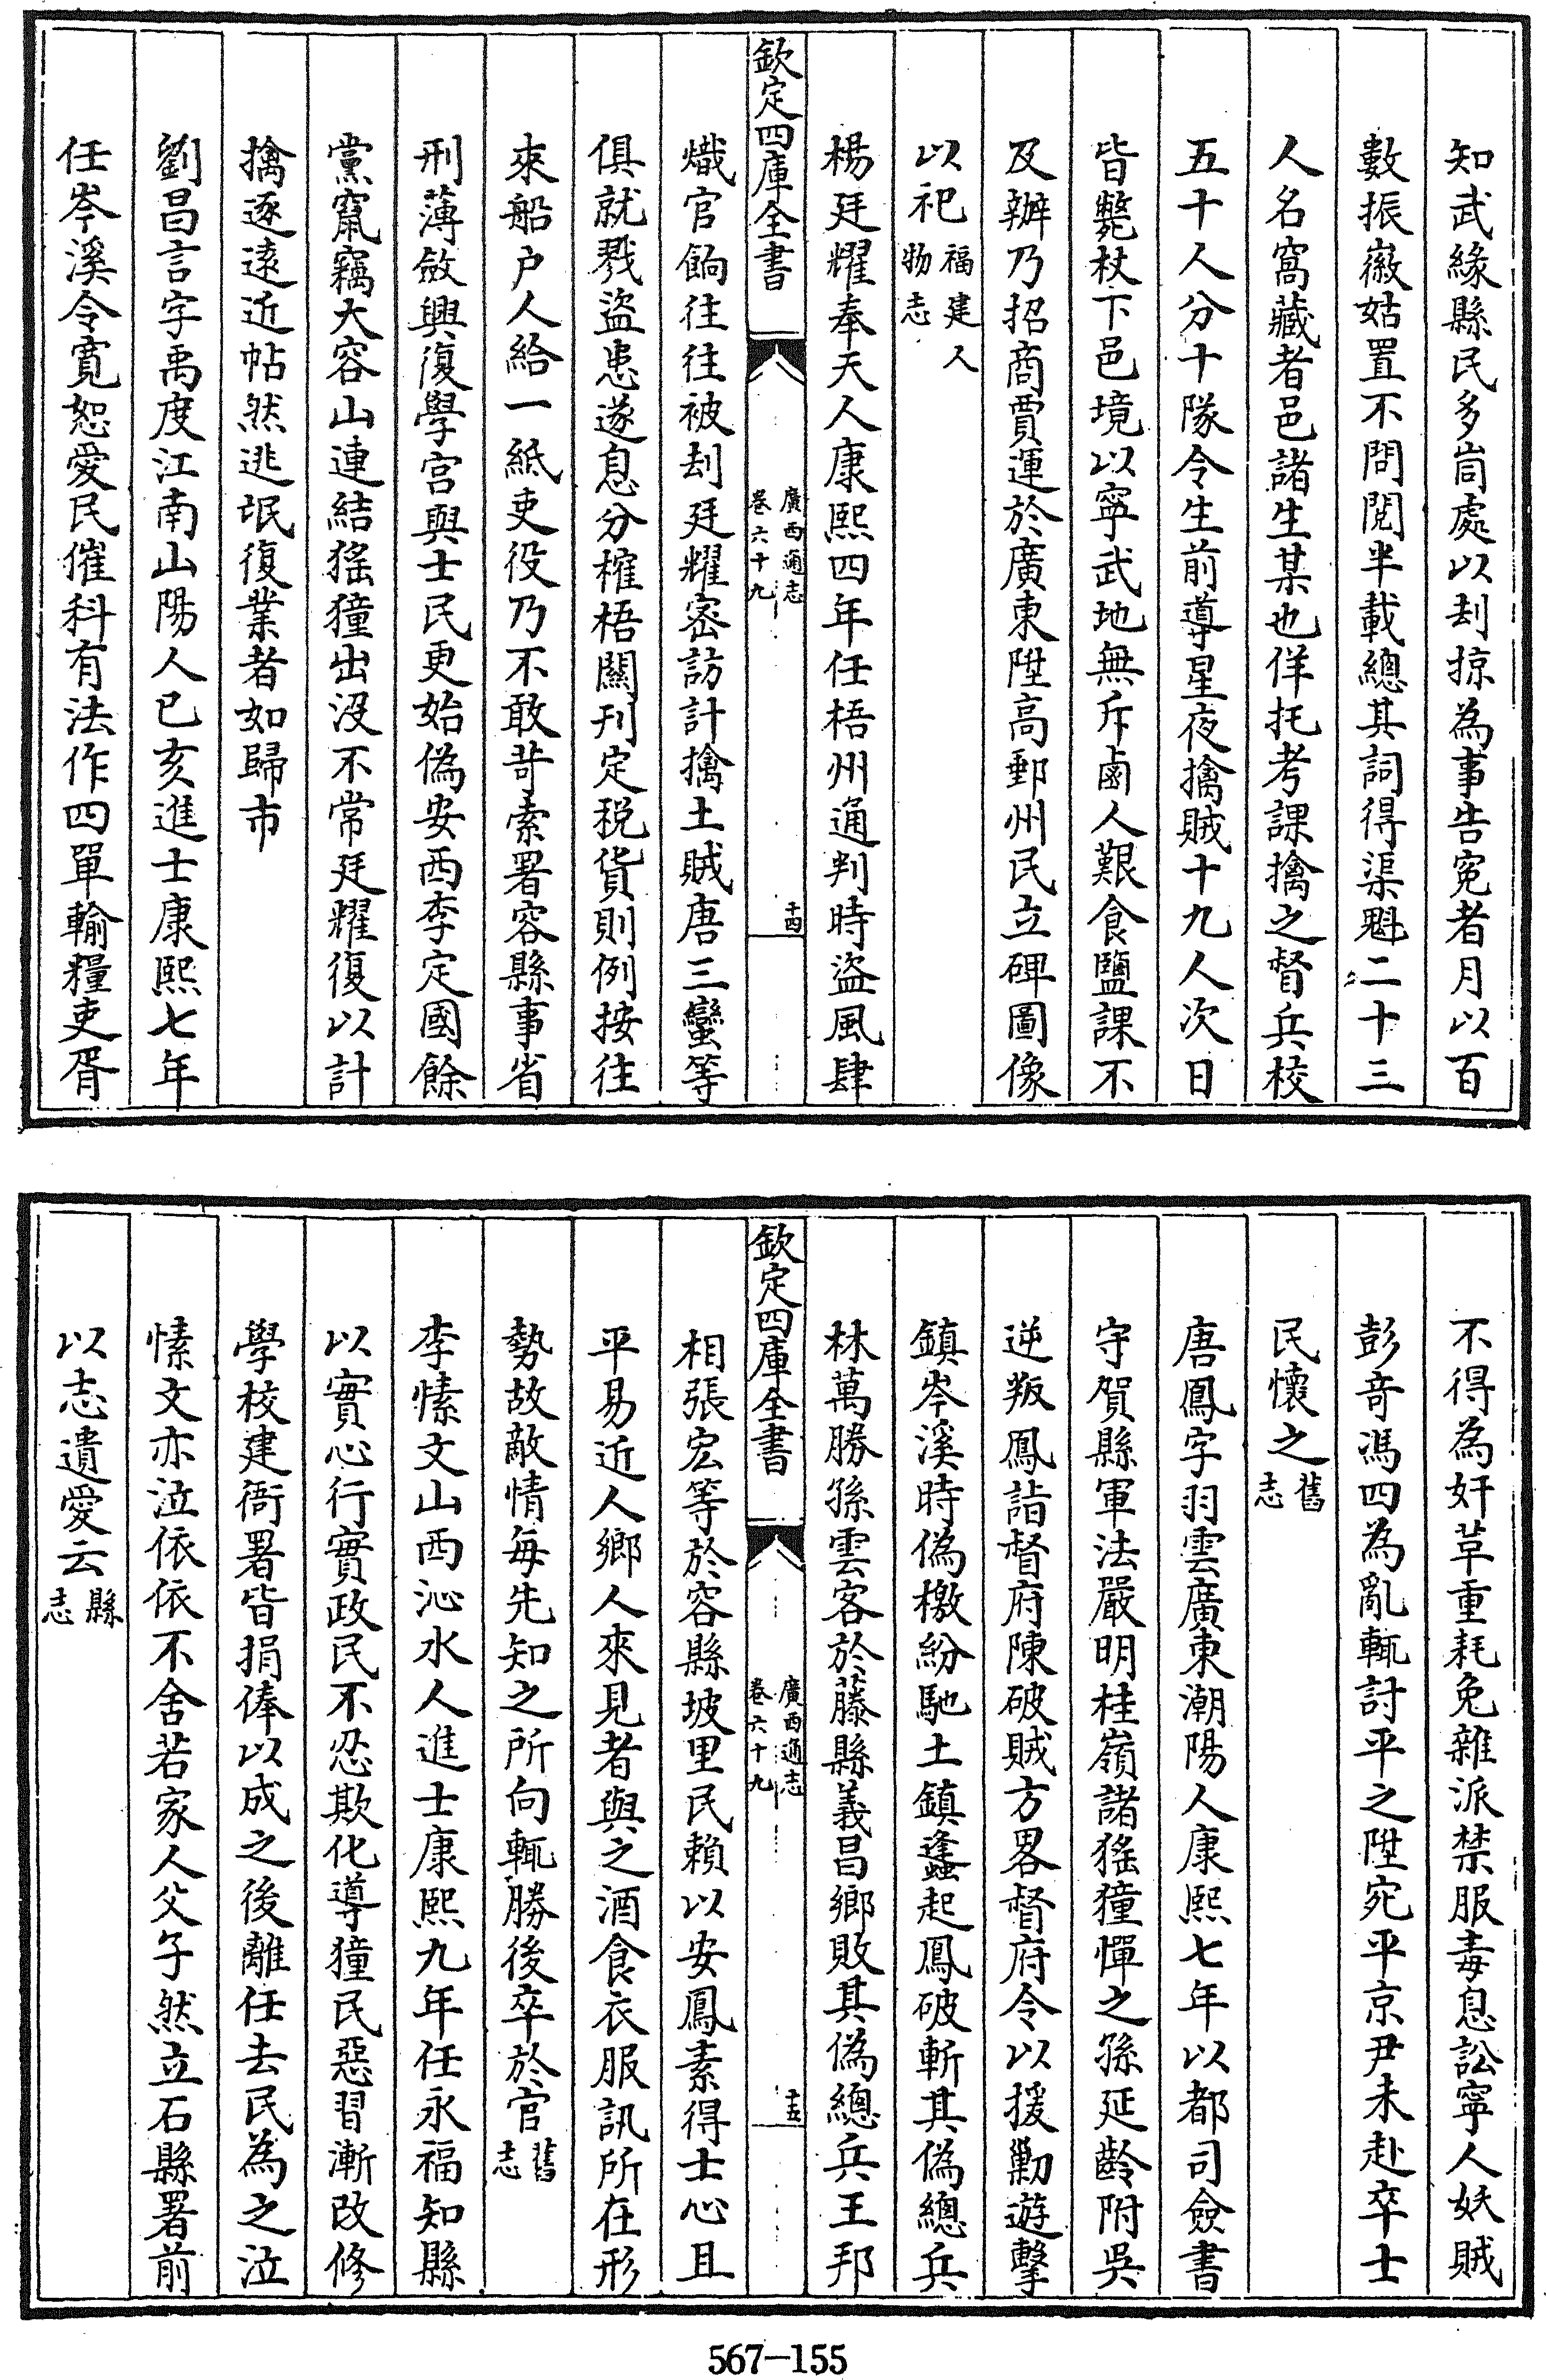 知武緣縣民多峝處以刦掠為事告寃者月以百
數振嶶姑置不問閱半載總其詞得渠魁二十三
人名窩藏者邑諸生某也佯托考課擒之督兵校
五十人分十隊令生前導星夜擒賊十九人次日
皆斃杖下邑境以寧武地無斥鹵人艱食鹽課不
及辦乃招商賈運於廣東陞高郵州民立碑圖像
以祀福建人物志
楊廷耀奉天人康熙四年任梧州通判時盜風肆
欽定四庫全書
廣西通志
卷六十九
十四
熾官餉往往被刦廷耀密訪計擒土賊唐三蠻等
俱就戮盜患遂息分榷梧關刋定税貨則例按往
來船户人給一紙吏役乃不敢苛索署容縣事省
刑薄斂興復學宮與士民更始偽安西李定國餘
黨竄竊大容山連結猺獞出沒不常廷耀復以計
擒逐遠近帖然逃氓復業者如歸市
劉昌言字禹度江南山陽人己亥進士康熙七年
任岑溪令寛恕愛民催科有法作四單輸糧吏胥
不得為奸革重耗免雜派禁服毒息訟寧人妖賊
彭奇馮四為亂輒討平之陞宛平京尹未赴卒士
民懷之舊志
唐鳳字羽雲廣東潮陽人康熙七年以都司僉書
守賀縣軍法嚴明桂嶺諸猺獞憚之孫延齡附吳
逆叛鳳詣督府陳破賊方畧督府令以援勦遊擊
鎮岑溪時偽檄紛馳土鎮蠭起鳳破斬其偽總兵
林萬勝孫雲客於藤縣義昌鄉敗其偽總兵王邦
欽定四庫全書
廣西通志
卷六十九
十五
相張宏等於容縣坡里民賴以安鳳素得士心且
平易近人鄉人來見者與之酒食衣服訊所在形
勢故敵情每先知之所向輒勝後卒於官舊志
李愫文山西沁水人進士康熙九年任永福知縣
以實心行實政民不忍欺化導獞民惡習漸改修
學校建衙署皆捐俸以成之後離任去民為之泣
愫文亦泣依依不舍若家人父子然立石縣署前
以志遺愛云縣志
567—155